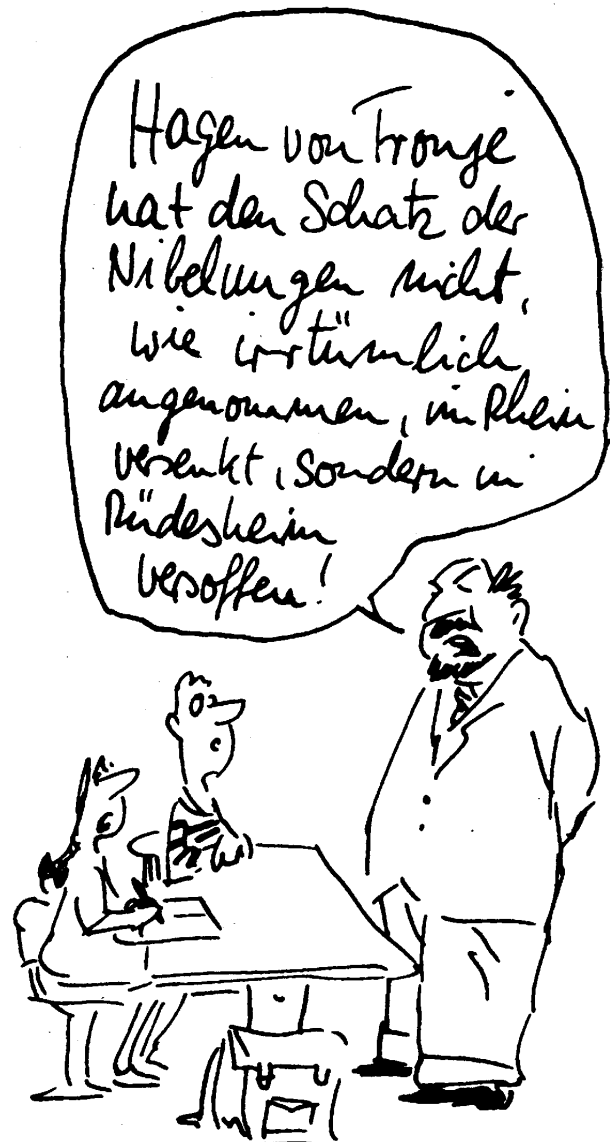 Hagen von Tronje
hat den Schatz der
Nibelungen nicht,
wie irrtümlich
angenommen, im Rhein
versenkt, sondern in
Rüdesheim
versoffen!